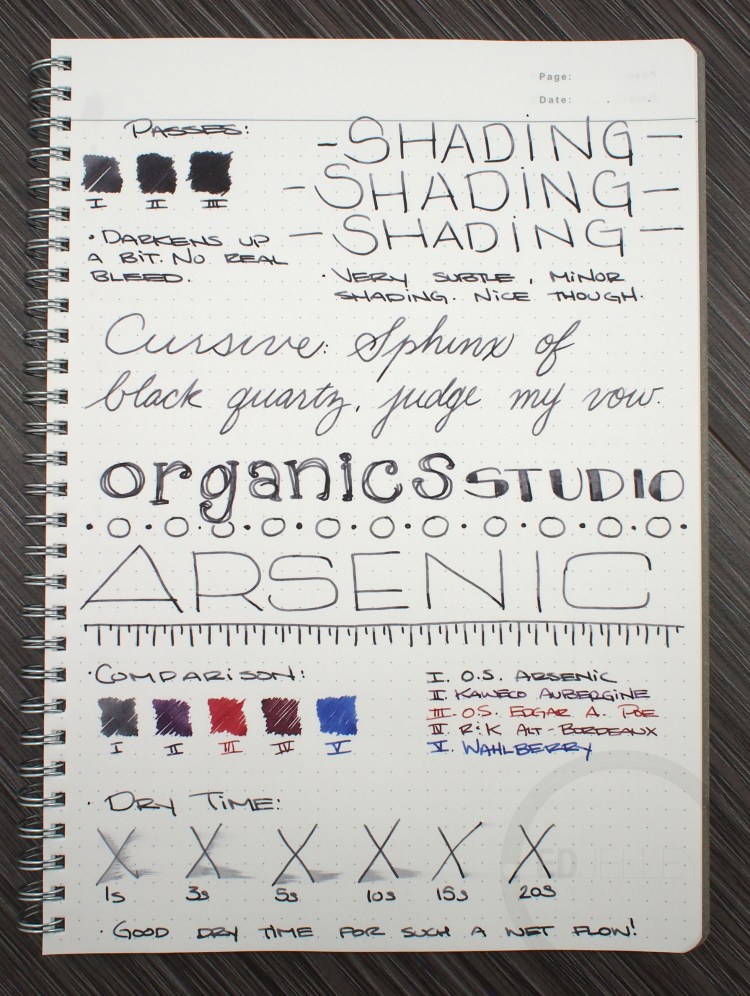 Page:
Date:
PASSES:
I II III
· DARKENS UP
A BIT. NO REAL
BLEED.
-SHADING-
-SHADING-
-SHADING-
· VERY SUBTLE, MINOR
SHADING. NICE THOUGH.
Cursive: Sphinx of
black quartz, judge my vow.
organics STUDIO
ARSENIC
· COMPARISON:
I II III IV V
I. O.S. ARSENIC
II. KAWECO AUBERGINE
III. O.S. EDGAR A. POE
IV. R&K ALT-BORDEAUX
V. WAHLBERRY
· DRY TIME:
1s 3s 5s 10s 15s 20s
· GOOD DRY TIME FOR SUCH A WET FLOW!
ED JELLEY